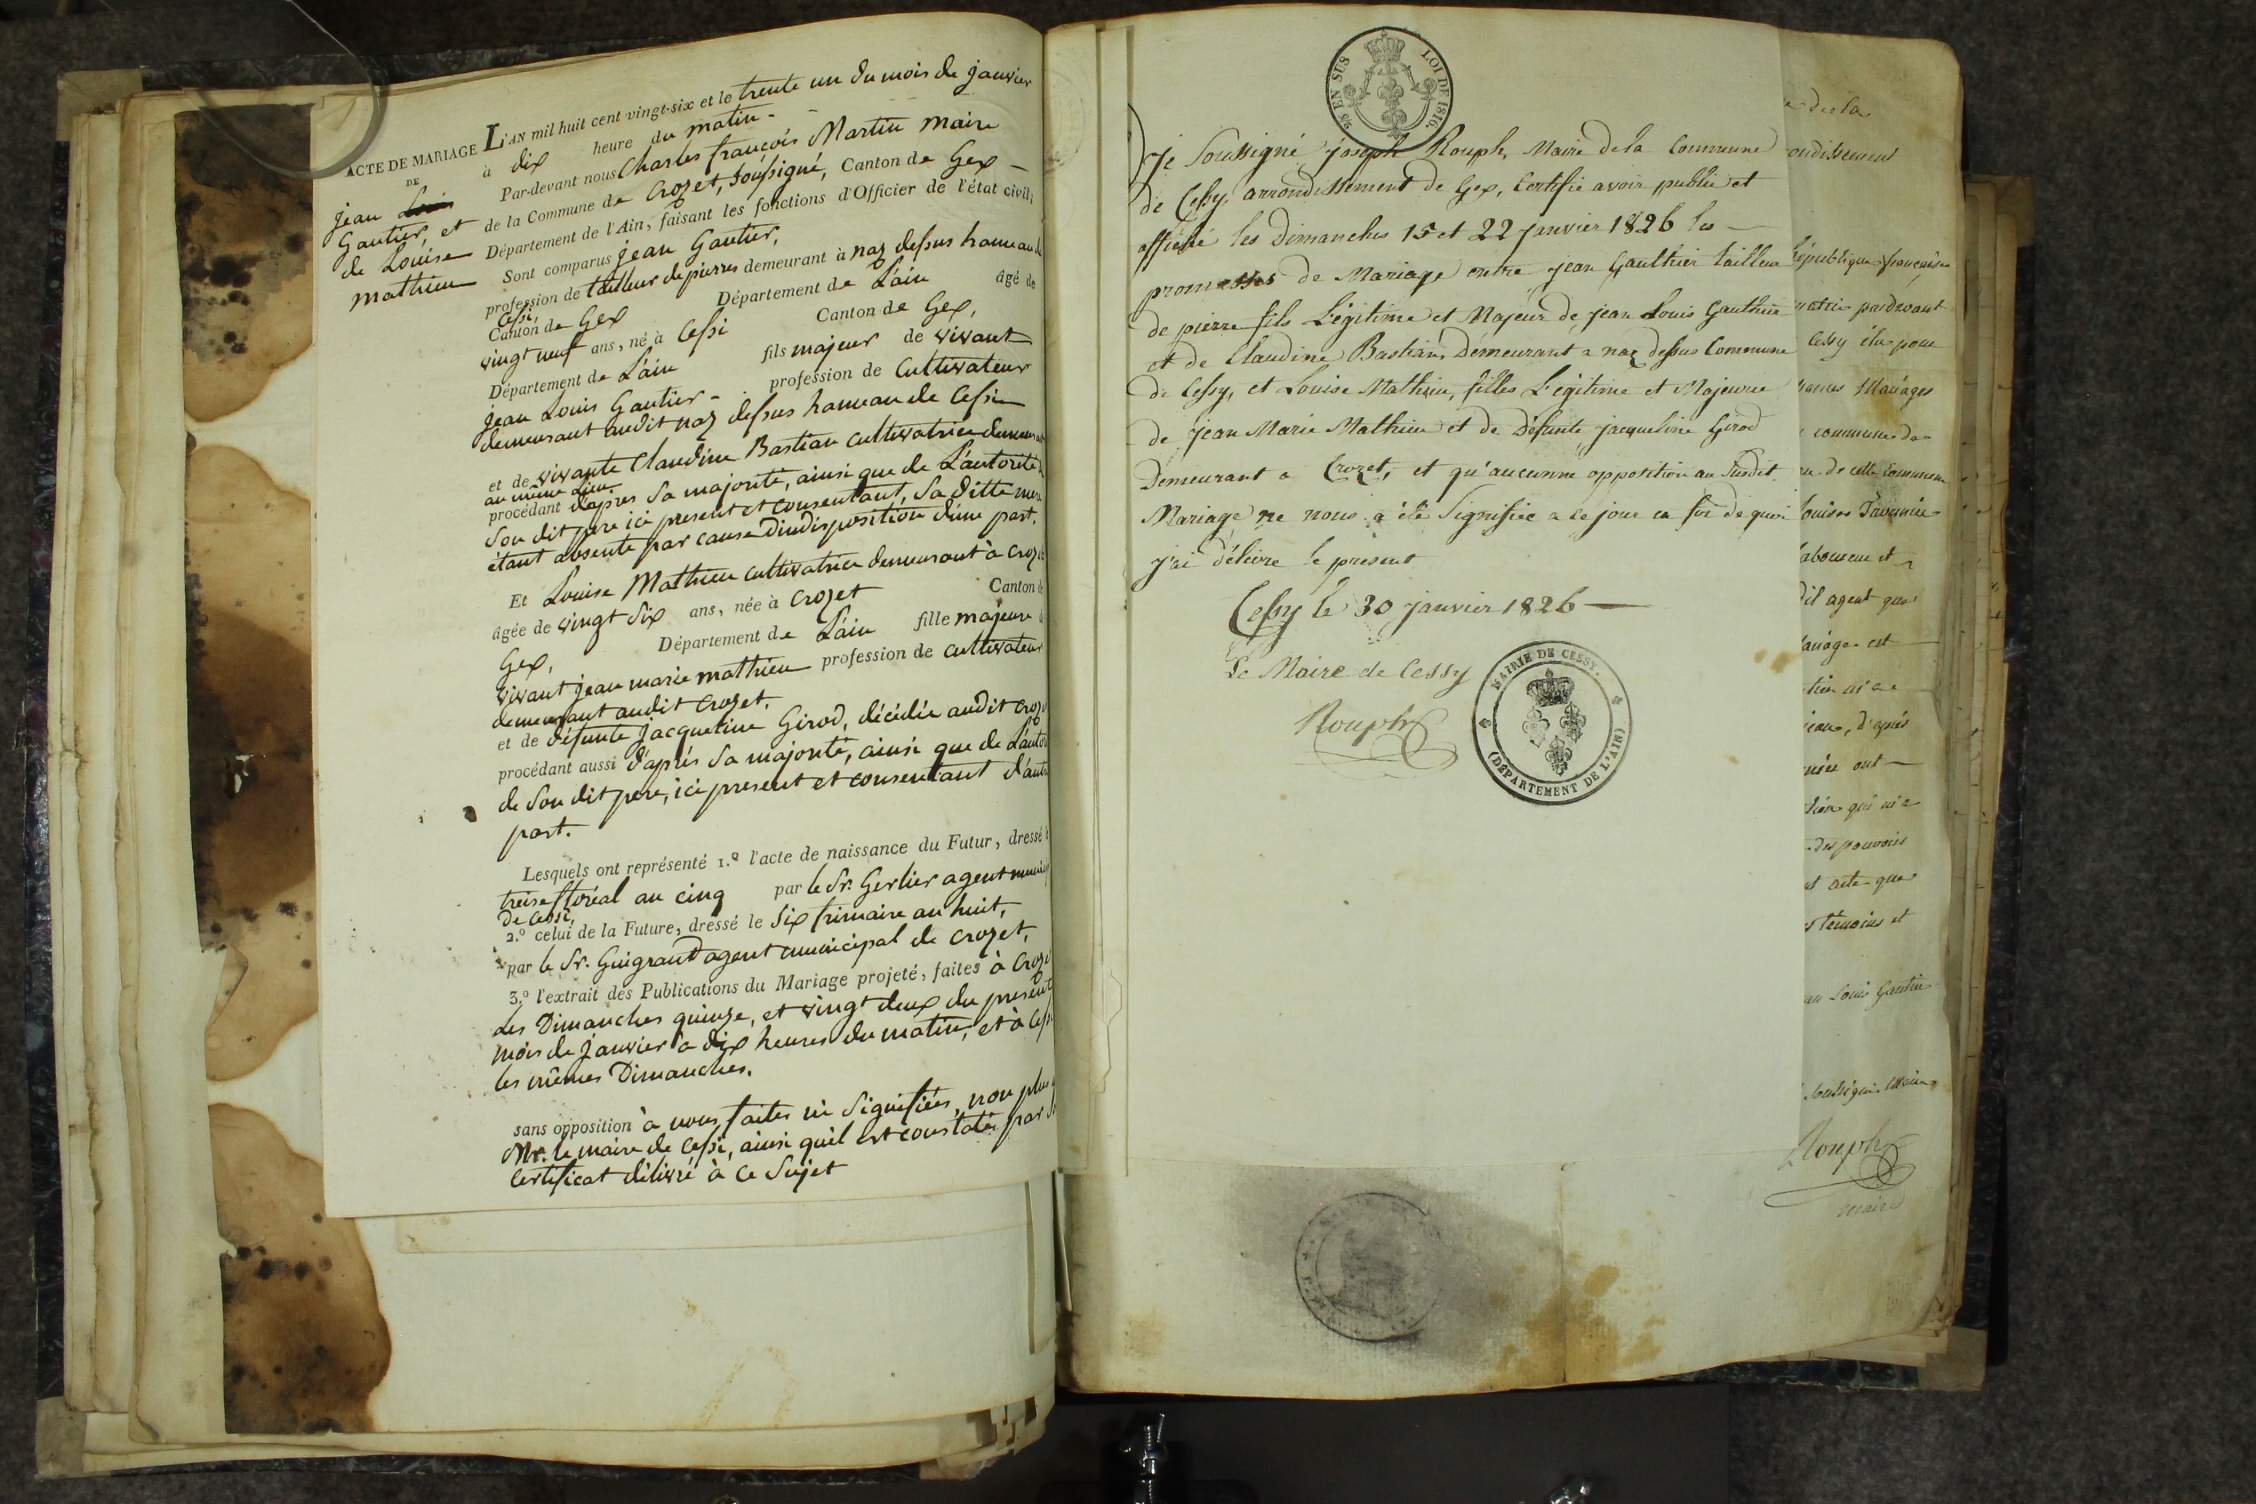 ACTE DE MARIAGE
DE
jean Louis
Gautier, et
de Louise
mathieu
L'AN mil huit cent vingt-six et le trente un du mois de janvier
à dix heure du matin -
Par-devant nous Charles françois Martin maire
de la Commune de Crozet, soussigné, Canton de Gex -
Département de l'Ain, faisant les fonctions d'Officier de l'état civil,
Sont comparus jean Gautier,
profession de tailleur de pierres demeurant à naz dessus hameau de
Cessi,
Canton de Gex Département de L'ain âgé de
vingt neuf ans, né à Cessi Canton de Gex,
Département de L'ain fils majeur de vivant
jean Louis Gautier - profession de Cultivateur
demeurant audit naz dessus hameau de Cessi
et de vivante Claudine Bastian cultivatrice demeurant
au même Lieu
procédant d'apres sa majorité, ainsi que de L'autorité de
son dit pere ici present et consentant, sa ditte mere
étant absente par cause D'indisposition d'une part.
Et Louise Mathieu cultivatrice demeurant à Crozet
âgée de vingt six ans, née à Crozet Canton de
Gex, Département de L'ain fille majeure de
vivant jean marie mathieu profession de cultivateur
demeurant audit Crozet.
et de défunte jacqueline Girod, décédée audit Crozet
procédant aussi d'après sa majorité, ainsi que de L'autor
de son dit pere, ici present et consentant d'autre
part.
Lesquels ont représenté 1.º l'acte de naissance du Futur, dressé le
treise floréal an cinq par le Sr. Gerlier agent municip
de Cessi,
2.º celui de la Future, dressé le six frimaire an huit,
par le Sr. Guigrand agent municipal de Crozet,
3.º l'extrait des Publications du Mariage projeté, faites à Crozet
Les Dimanches quinze, et vingt deux du present
mois de janvier à dix heures du matin, et à Cessi
les mêmes Dimanches.
sans opposition à nous faites ni signifiées, non plus
Mr. le maire de Cessi, ainsi quil est constaté par
Certificat délivré à ce sujet
25 EN SUS LOI DE 1816.
Je Soussigné joseph Rouph, Maire de la Commune
de Cessy, arrondissement de Gex, Certifie avoir publié et
affiché les Dimanches 15 et 22 janvier 1826 les
promesses de Mariage entre jean Gaulthier tailleur
de pierre fils Légitime et Majeur de jean Louis Gaulthier
et de Claudine Bastian, Demeurant a naz dessus Commune
de Cessy, et Louise Mathieu, filles Légitime et Majeure
de jean Marie Mathieu et de Défunte jacqueline Girod
Demeurant a Crozet, et qu'aucunne opposition au susdit
Mariage ne nous a été Signifiée a ce jour en foi de quoi
j'ai délivré le present
Cessy le 30 janvier 1826
Le Maire de Cessy
Rouph
MAIRIE DE CESSY.
(DÉPARTEMENT DE L'AIN)
de la
ondissement
République française
pardevant
Cessy élu pour
Mariages
commune de
de cette commune
Louise
laboureur et
dit agent que
Mariage est
d'après
ont
qui
des pouvoirs
acte que
témoins et
Louis Gautier
soussigné Maire
Rouph
maire